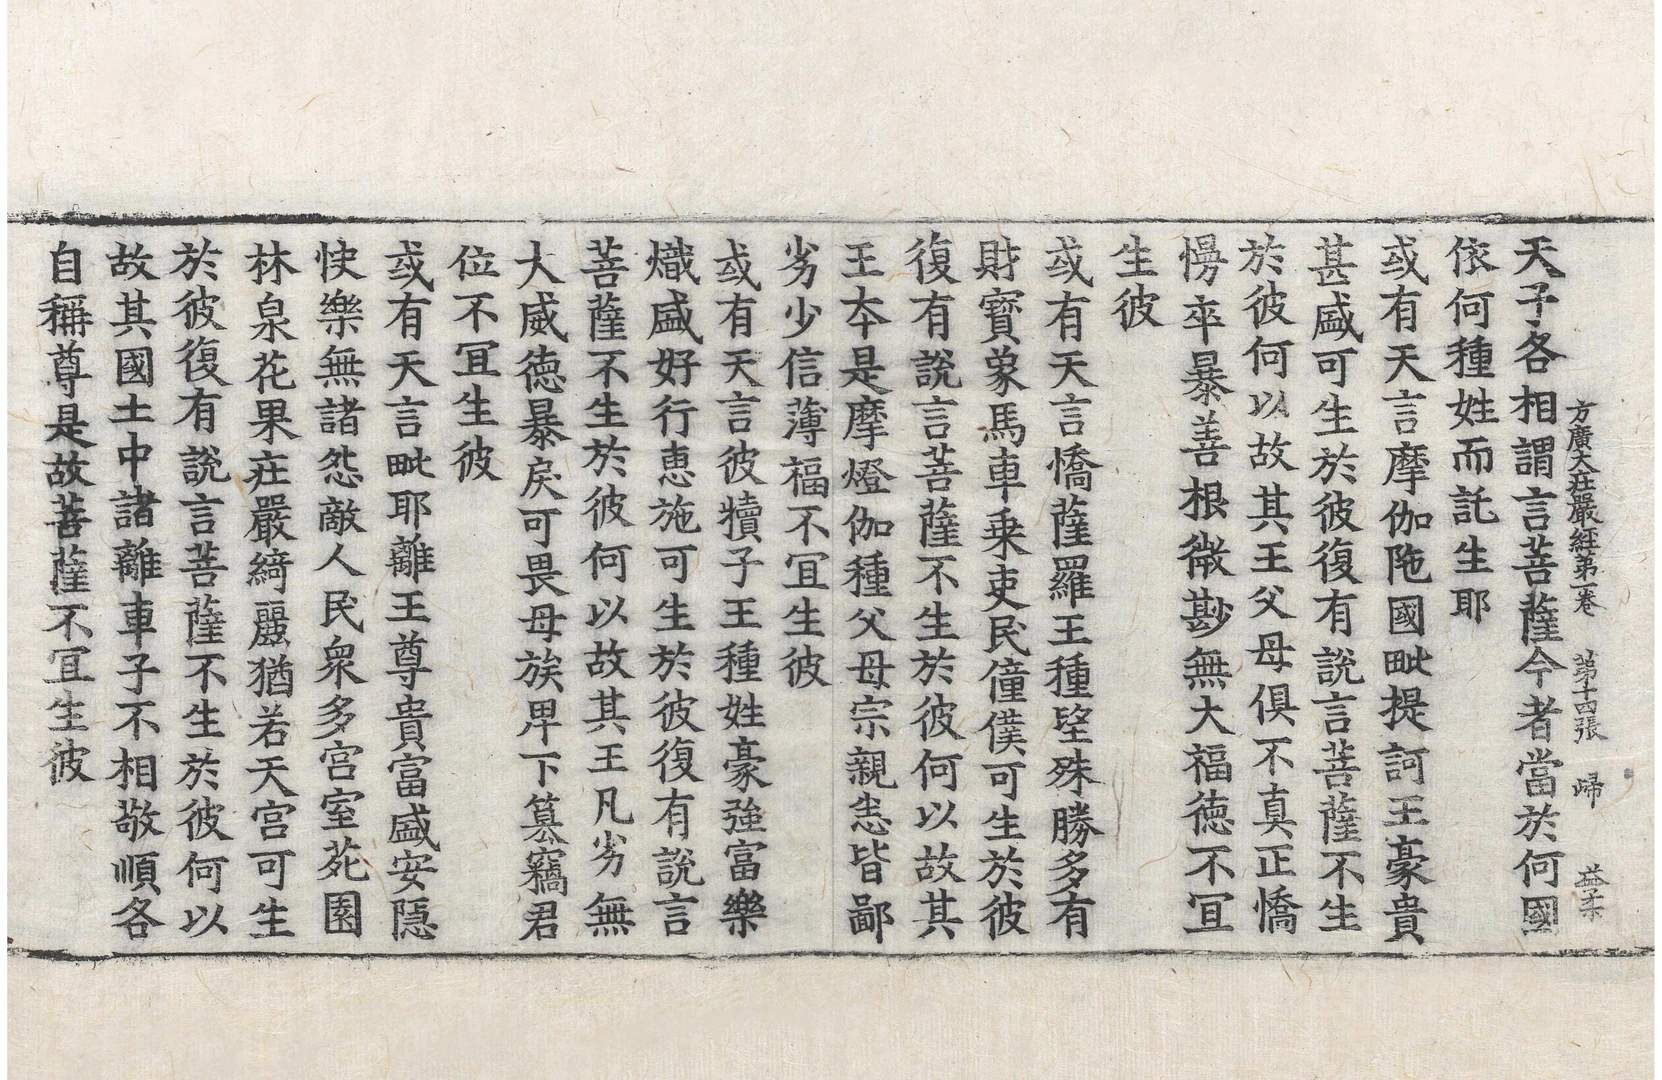 方廣大莊嚴經第一卷 第十四張 歸 益柔
天子各相謂言菩薩今者當於何國
依何種姓而託生耶
或有天言摩伽陁國毗提訶王豪貴
甚盛可生於彼復有說言菩薩不生
於彼何以故其王父母俱不真正憍
慢卒暴善根微尠無大福德不冝
生彼
或有天言憍薩羅王種望殊勝多有
財寶象馬車乗吏民僮僕可生於彼
復有說言菩薩不生於彼何以故其
王夲是摩燈伽種父母宗親恚皆鄙
劣少信薄福不冝生彼
或有天言彼犢子王種姓豪強富樂
熾盛好行惠施可生於彼復有說言
菩薩不生於彼何以故其王凡劣無
大威德暴戾可畏母族卑下篡竊君
位不冝生彼
或有天言毗耶離王尊貴富盛安隱
快樂無諸怨敵人民衆多宮室苑園
林泉花果莊嚴綺麗猶若天宮可生
於彼復有說言菩薩不生於彼何以
故其國土中諸離車子不相敬順各
自稱尊是故菩薩不冝生彼